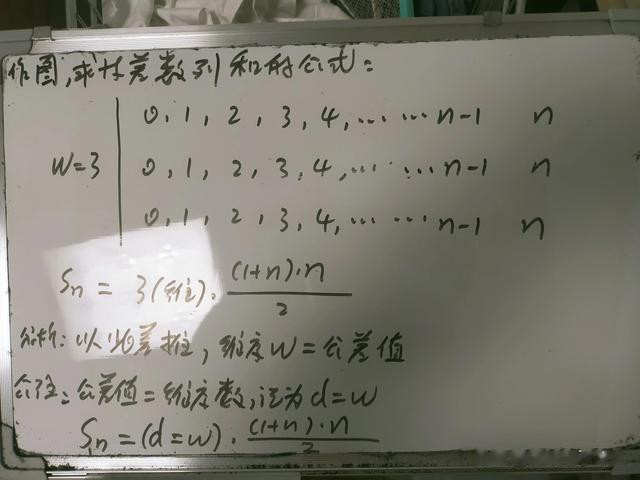 作图,求等差数列和的公式:
0, 1, 2, 3, 4, …… n-1 n
W=3 0, 1, 2, 3, 4, …… n-1 n
0, 1, 2, 3, 4, …… n-1 n
Sn = 3(维)·(1+n)·n/2
分析:以此差推,维度W=公差值
公注:公差值=维度数,记为d=w
Sn=(d=w)·(1+n)·n/2